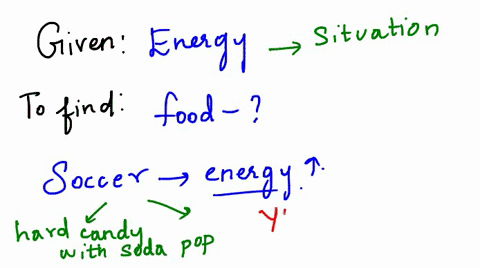 Given: Energy → Situation
To find: food - ?
Soccer → energy ↑.
hard candy
with soda pop